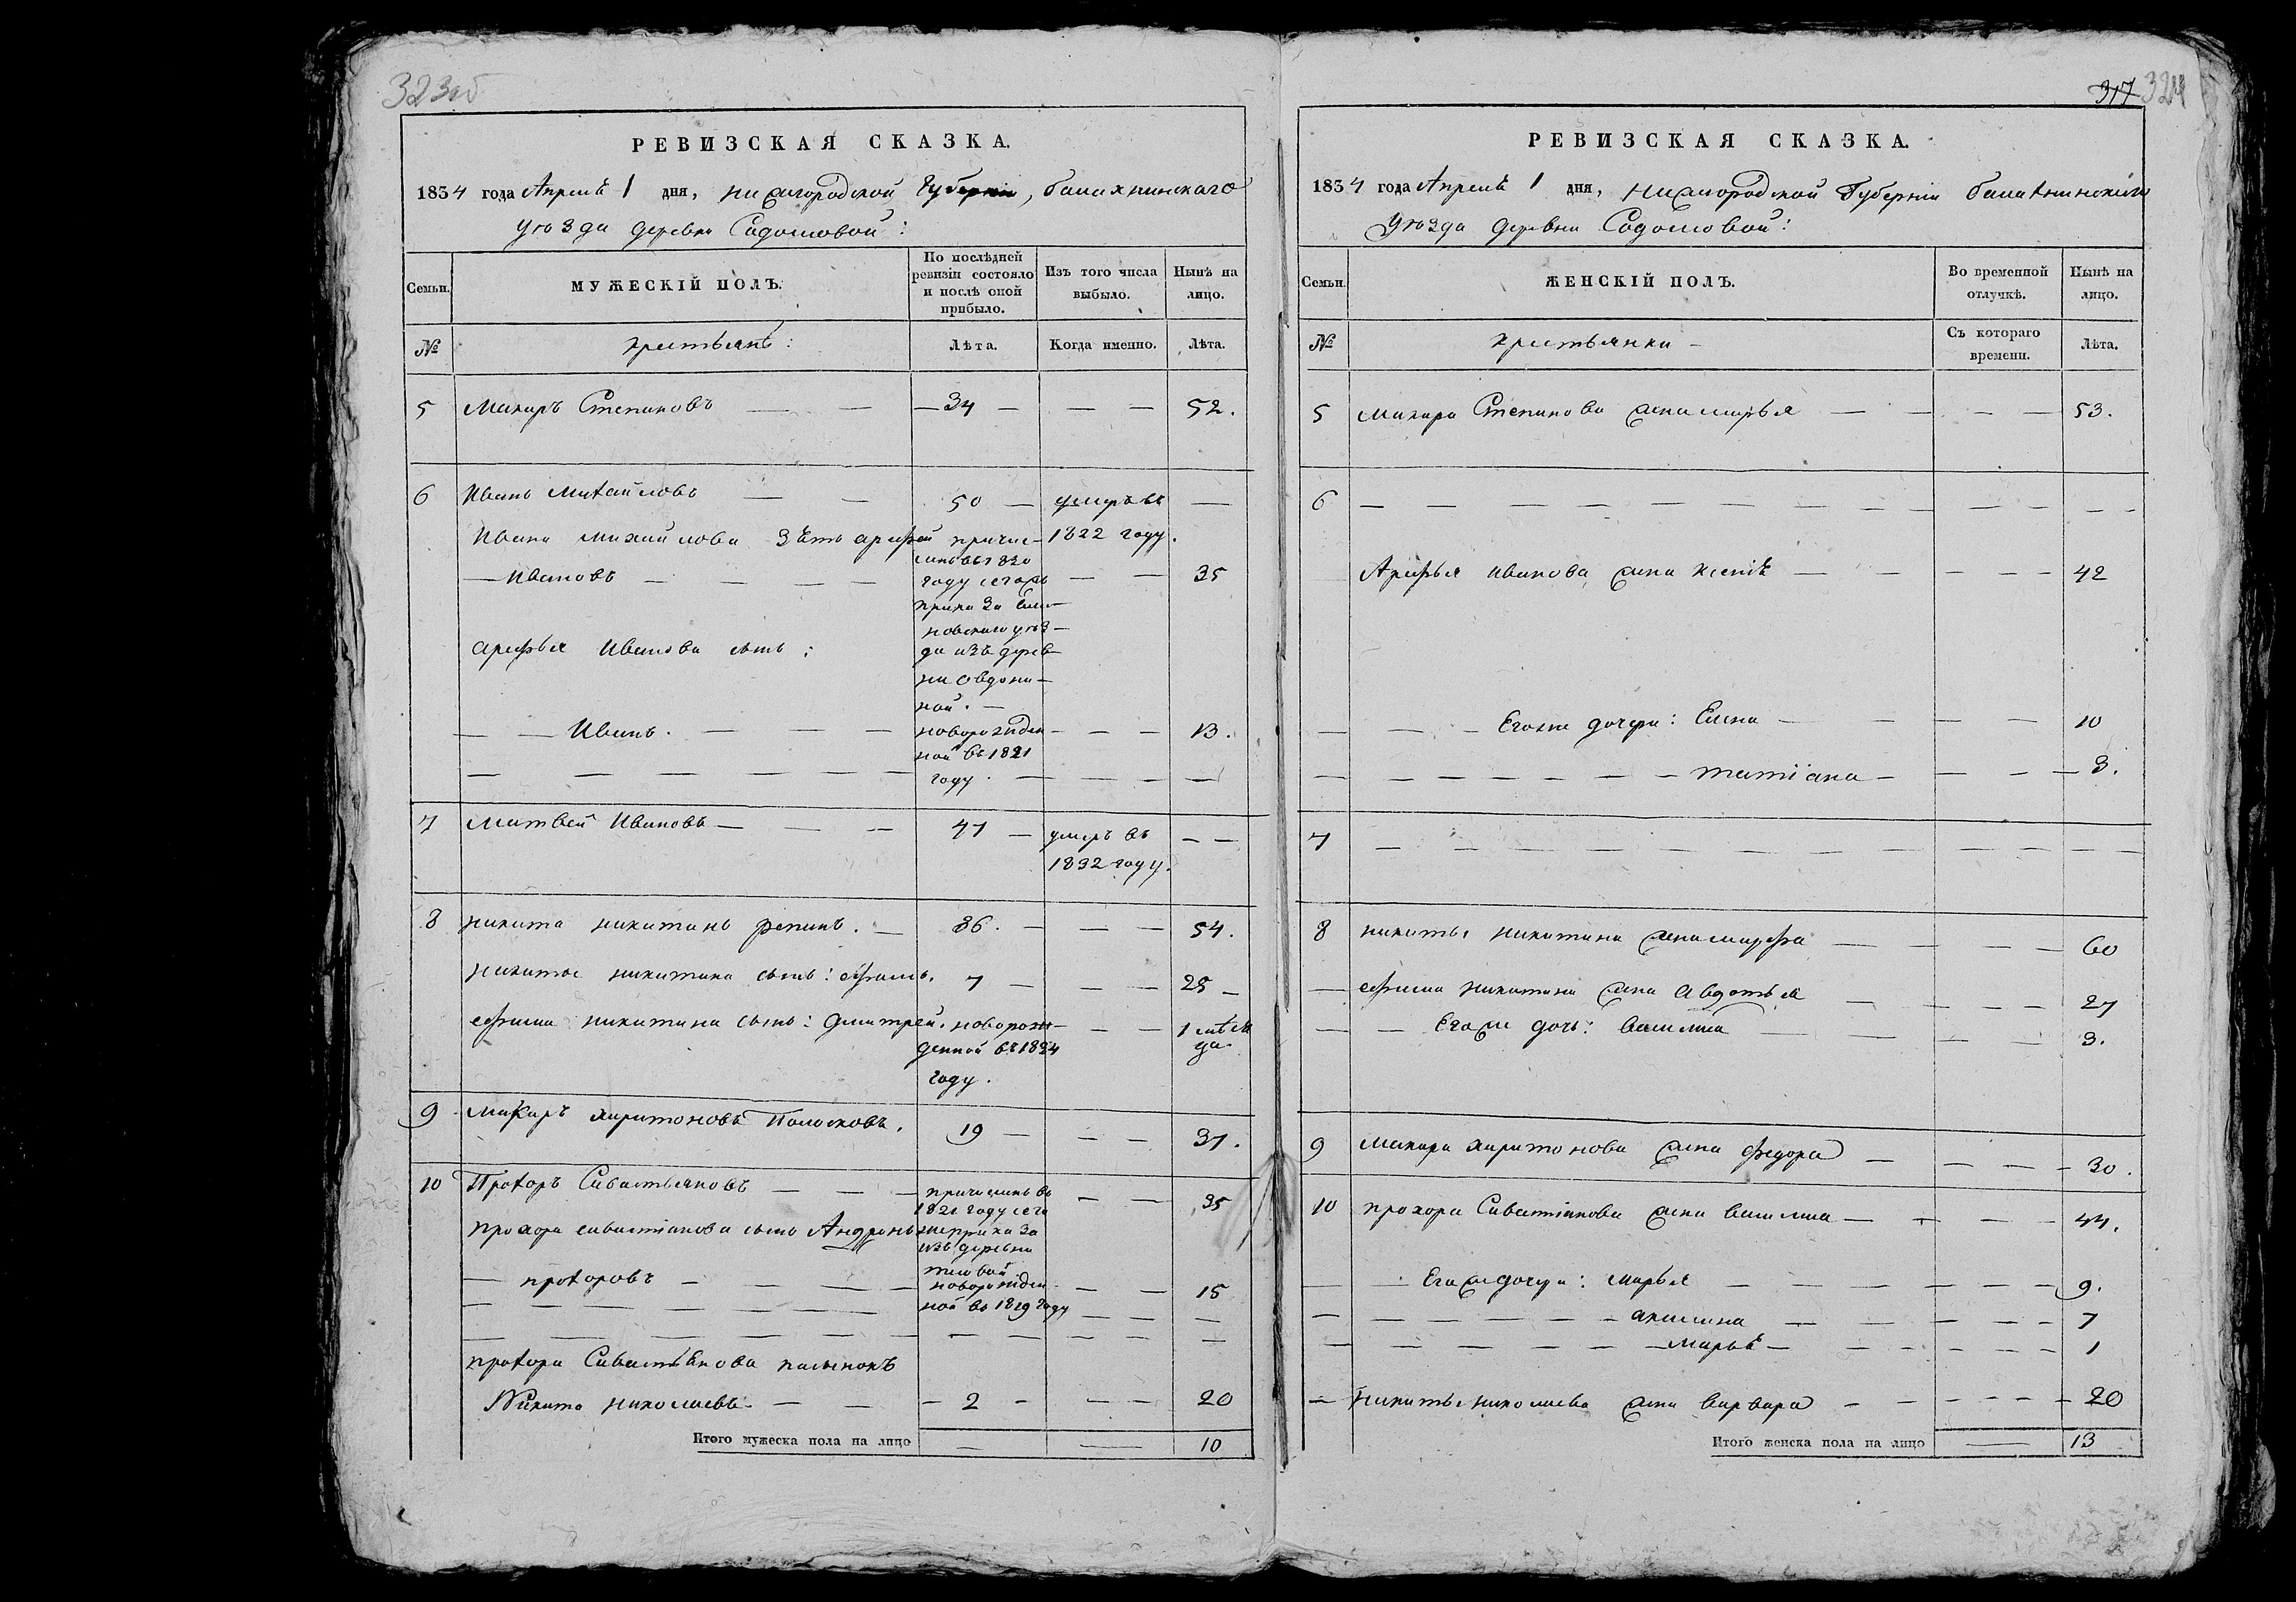 323об
РЕВИЗСКАЯ СКАЗКА.
1834 года Апреля 1 дня, нижегородской Губернии, балахнинскаго
уезда деревни Садомовой:
Семьи.
МУЖЕСКІЙ ПОЛЪ.
По послѣдней ревизіи состояло и послѣ оной прибыло.
Изъ того числа выбыло.
Нынѣ на лицо.
№
крестьянъ:
Лѣта.
Когда именно.
Лѣта.
5 Макаръ Степановъ — — — 34 — — — 52.
6 Иванъ Михайловъ — — 50 — умеръ въ —
Ивана михайлова зять арефей причис- 1822 году.
ленъ въ 1820
— Ивановъ — — — — году — — 35
приказа
новскаго уѣз-
арефья Иванова сынъ: да изъ дерев-
ни овдони-
ной. —
— — Иванъ. — — — новорожден- — — 13.
ной въ 1821
— — — — — — — году. — — — —
7 Матвей Ивановъ — — — 47 — умеръ въ — —
1832 году.
8 никита никитинъ репинъ. — 36. — — — 54.
никиты никитина сынъ: ефимъ. 7 — — — 25 —
ефима никитина сынъ: дмитрей. новорож- — — 1
денной въ 1834
году.
9 Макаръ харитоновъ Полосковъ. 19 — — — 37.
10 Прохоръ Савастьяновъ — — — причисленъ въ — — 35
1821 году
прохора савастіанова сынъ Андронъ приказа
изъ деревни
— прохоровъ — — — — новорожден- — — 15
— — — — — — ной въ 1819 году — — —
— — — — — — — — — — — —
прохора Савастьянова пасынокъ
Никита николаевъ — — — 2 — — — 20
Итого мужеска пола на лицо — — 10
317 324
РЕВИЗСКАЯ СКАЗКА.
1834 года Апреля 1 дня, нижегородской Губернии балахнинскаго
уезда деревни Садомовой:
Семьи.
ЖЕНСКІЙ ПОЛЪ.
Во временной отлучкѣ.
Нынѣ на лицо.
№
крестьянки —
Съ котораго времени.
Лѣта.
5 макара Степанова жена марья — — — — 53.
6 — — — — — — — — — — — —
Арефья иванова жена ксенія — — — — — 42
— — — Егоже дочери: Елена — — — — 10
— — — — — — — — татіана — — — — 3.
7 — — — — — — — — — — —
8 никиты никитина жена марфа — — — — — 60
— ефима никитина жена авдотья — — — — — 27
— — Егоже дочь: василиса — — — — 3.
9 макара харитонова жена федора — — — — 30.
10 прохора Савастіанова жена василиса — — — — 44.
— — Егоже дочери: марья — — — — — — 9.
— — — — — — — акилина — — — — — 7
— — — — — — — марья — — — — — — 1
— никиты николаева жена варвара — — — — — — 20
Итого женска пола на лицо — 13